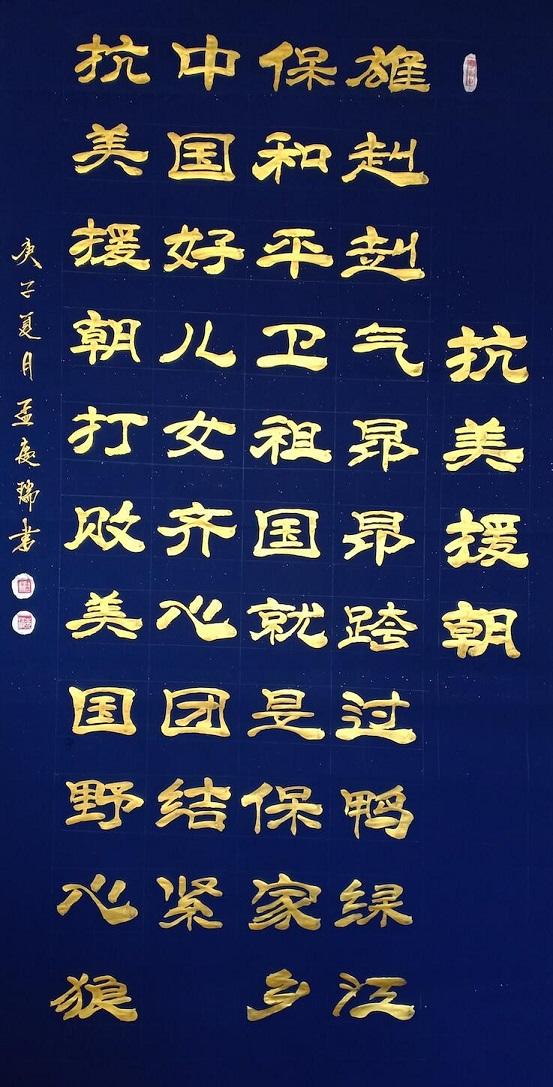 抗美援朝
雄赳赳气昂昂跨过鸭绿江
保和平卫祖国就是保家乡
中国好儿女齐心团结紧
抗美援朝打败美国野心狼
庚子夏月孟慶瑞書